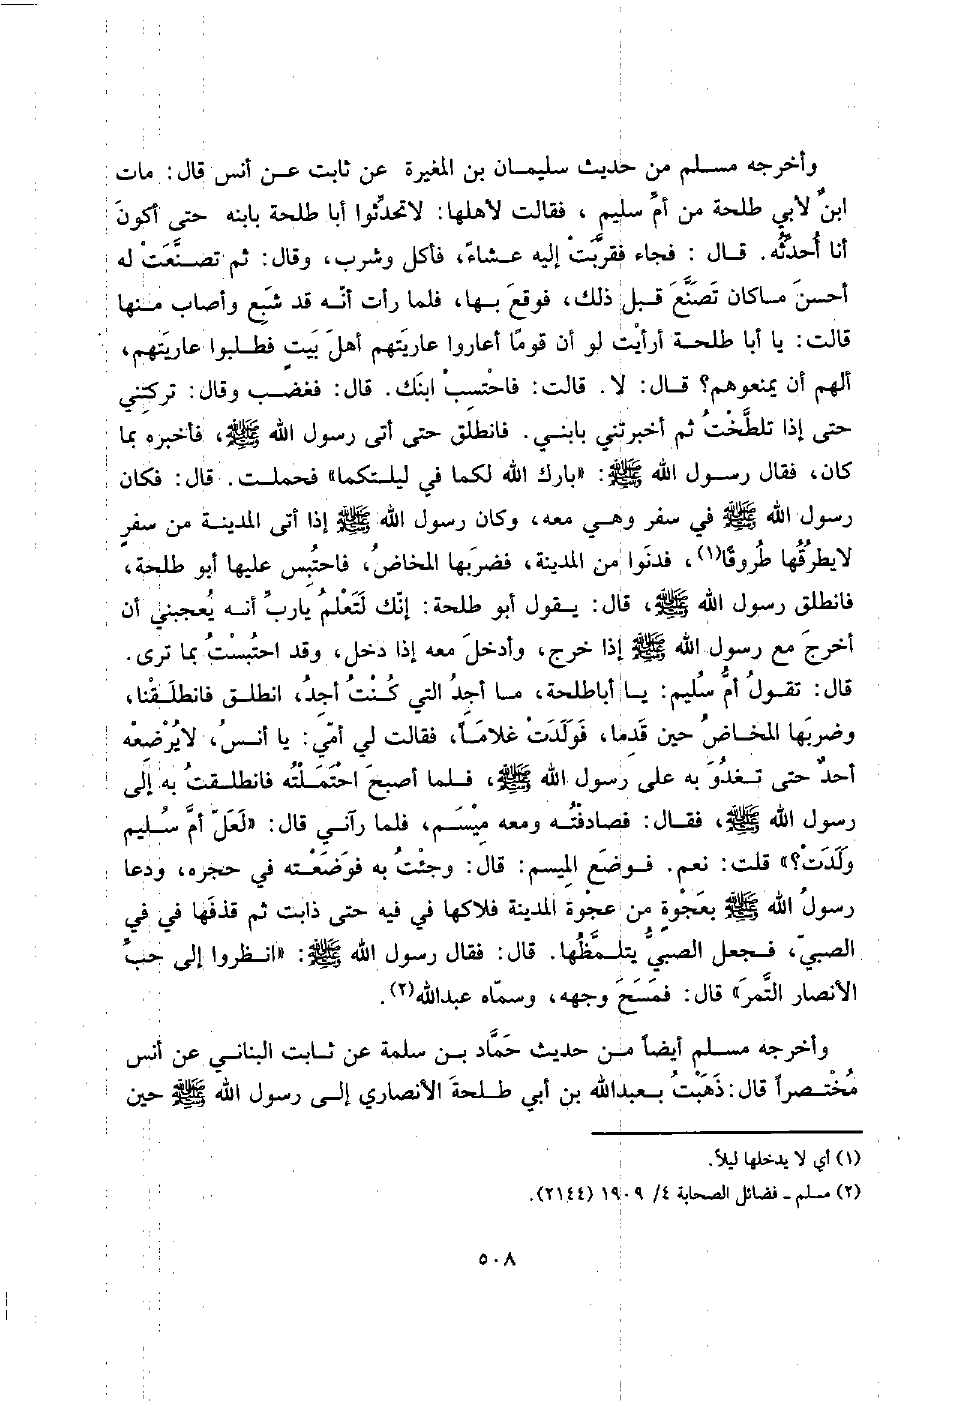 وأخرجه مسلم من حديث سليمان بن المغيرة عن ثابت عن أنس قال: مات
ابنٌ لأبي طلحة من أمِّ سليم ، فقالت لأهلها: لاتحدِّثوا أبا طلحة بابنه حتى أكونَ
أنا أُحدِّثُه. قال : فجاء فقرَّبَتْ إليه عشاءً، فأكل وشرب، وقال: ثم تصنَّعَتْ له
أحسنَ ماكان تَصَنَّعَ قبل ذلك، فوقعَ بها، فلما رأت أنّه قد شبَع وأصاب منها
قالت: يا أبا طلحة أرأيْت لو أن قومًا أعاروا عاريَتهم أهلَ بَيتٍ فطلبوا عاريَتهم،
ألهم أن يمنعوهم؟ قال: لا. قالت: فاحْتسِبْ ابنَك. قال: فغضب وقال: تركتِني
حتى إذا تلطَّخْتُ ثم أخبرتني بابني. فانطلق حتى أتى رسول الله ﷺ، فأخبره بما
كان، فقال رسول الله ﷺ: «بارك الله لكما في ليلتكما» فحملت. قال: فكان
رسول الله ﷺ في سفر وهي معه، وكان رسول الله ﷺ إذا أتى المدينة من سفرٍ
لايطرُقُها طُروقًا(١)، فدنَوا من المدينة، فضربَها المخاضُ، فاحتُبِس عليها أبو طلحة،
فانطلق رسول الله ﷺ، قال: يقول أبو طلحة: إنّك لَتَعْلمُ ياربِّ أنه يُعجبني أن
أخرجَ مع رسول الله ﷺ إذا خرج، وأدخلَ معه إذا دخل، وقد احتُبستُ بما ترى.
قال: تقولُ أمُّ سُليم: يا أباطلحة، ما أجدُ التي كُنْتُ أجِدُ، انطلق فانطلَقْنا،
وضربَها المخاضُ حين قَدِما، فَوَلَدَتْ غلامَاً، فقالت لي أمّي: يا أنسُ، لايُرْضِعْه
أحدٌ حتى تغدُوَ به على رسول الله ﷺ، فلما أصبحَ احْتَمَلْتُه فانطلقتُ به إلى
رسول الله ﷺ، فقال: فصادفتُه ومعه مِيْسَم، فلما رآني قال: «لَعَلّ أمَّ سُليم
ولَدَتْ؟» قلت: نعم. فوضَع المِيسم: قال: وجئْتُ به فوَضَعْته في حجره، ودعا
رسولُ الله ﷺ بعَجْوةٍ من عجْوة المدينة فلاكها في فيه حتى ذابت ثم قذفَها في في
الصبيّ، فجعل الصبيُّ يتلمَّظُها. قال: فقال رسول الله ﷺ: «انظروا إلى حبِّ
الأنصار التَّمرَ» قال: فمَسَحَ وجهه، وسمّاه عبدالله(٢).
وأخرجه مسلم أيضاً من حديث حَمَّاد بن سلمة عن ثابت البناني عن أنس
مُخْتصراً قال: ذَهَبْتُ بعبدالله بن أبي طلحةَ الأنصاري إلى رسول الله ﷺ حين
(١) أي لا يدخلها ليلاً.
(٢) مسلم ـ فضائل الصحابة ٤/ ١٩٠٩ (٢١٤٤).
٥٠٨